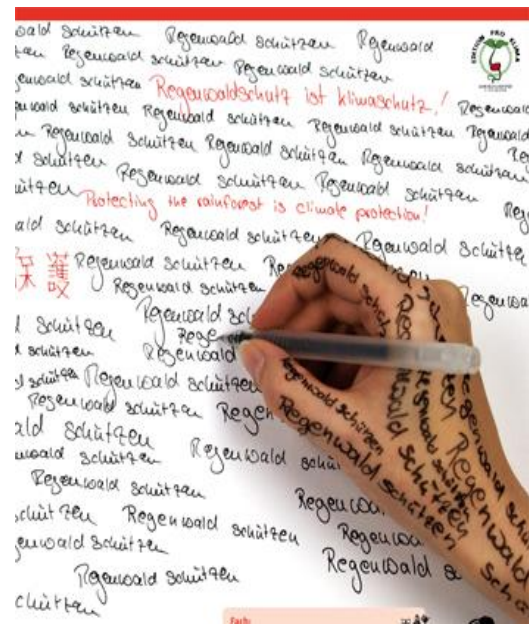 wald schützen Regenwald schützen Regenwald
Regenwald schützen Regenwald schützen
schützen Regenwaldschutz ist klimaschutz! Regenwald
schützen Regenwald schützen Regenwald schützen Regenwald
Regenwald schützen Regenwald schützen Regenwald schützen
schützen Regenwald schützen Regenwald schützen
Protecting the rainforest is climate protection!
ald schützen Regenwald schützen Regenwald schütze
保護 Regenwald schützen
Regenwald schützen
Regenwald sch
schützen Rege
schützen Regenwald
schützen Regenwald schützen
Regenwald schützen Regen
ald schützen
schützen Regenwald schü
Regenwald schützen
schützen Regenwald schützen Regenwa
Regenwald schützen
Regenwald s
Regenwald schützen
chützen
EDITION PRO KLIMA
Regenwald schützen
Regenwald schützen
Regenwald schützen
Regenwald schützen
Regenwald schützen
Fach: